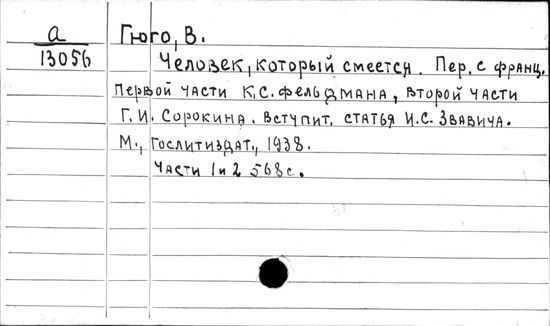 а
13056
Гюго, В.
Человек, который смеется. Пер. с франц.
первой части К.С. Фельдмана, второй части
Г.И. Сорокина. Вступит. статья И.С. Звавича.
М., Гослитиздат, 1938.
Части 1 и 2 568 с.